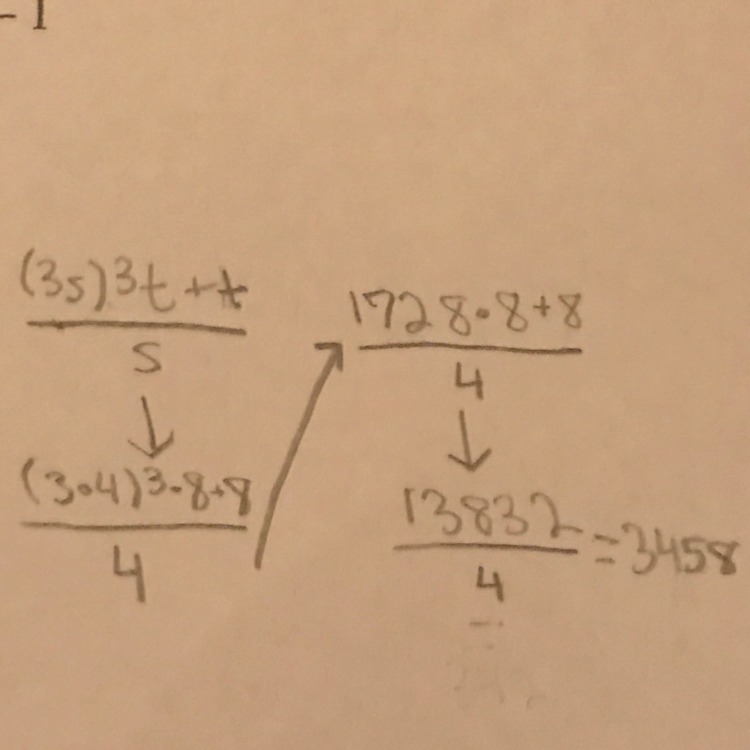 - 1
(3s)³t + t
s
(3•4)³•8+8
4
1728•8+8
4
13832
4
=3458